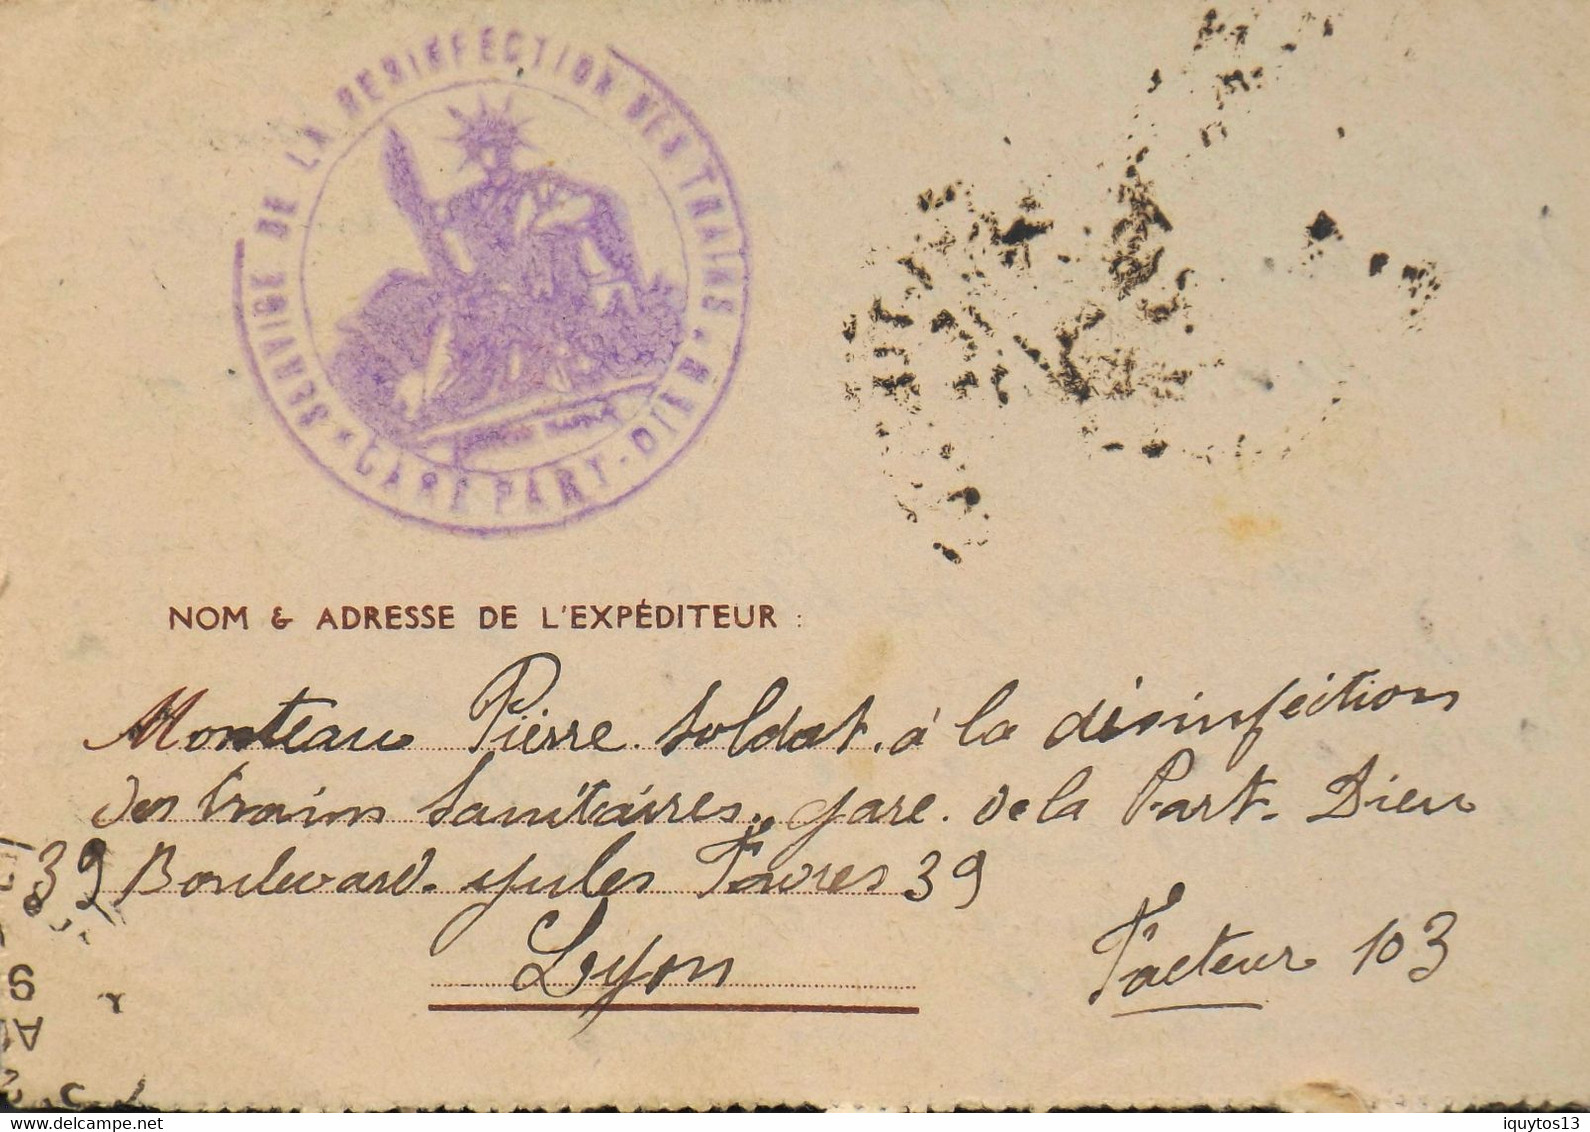 SERVICE DE LA DESINFECTION DES TRAINS
GARE PART-DIEU
NOM & ADRESSE DE L'EXPÉDITEUR :
Monteau Pierre soldat à la désinfection
des trains sanitaires. gare de la Part-Dieu
39 Boulevard Jules Favres 39
Lyon
Facteur 103
iquytos13